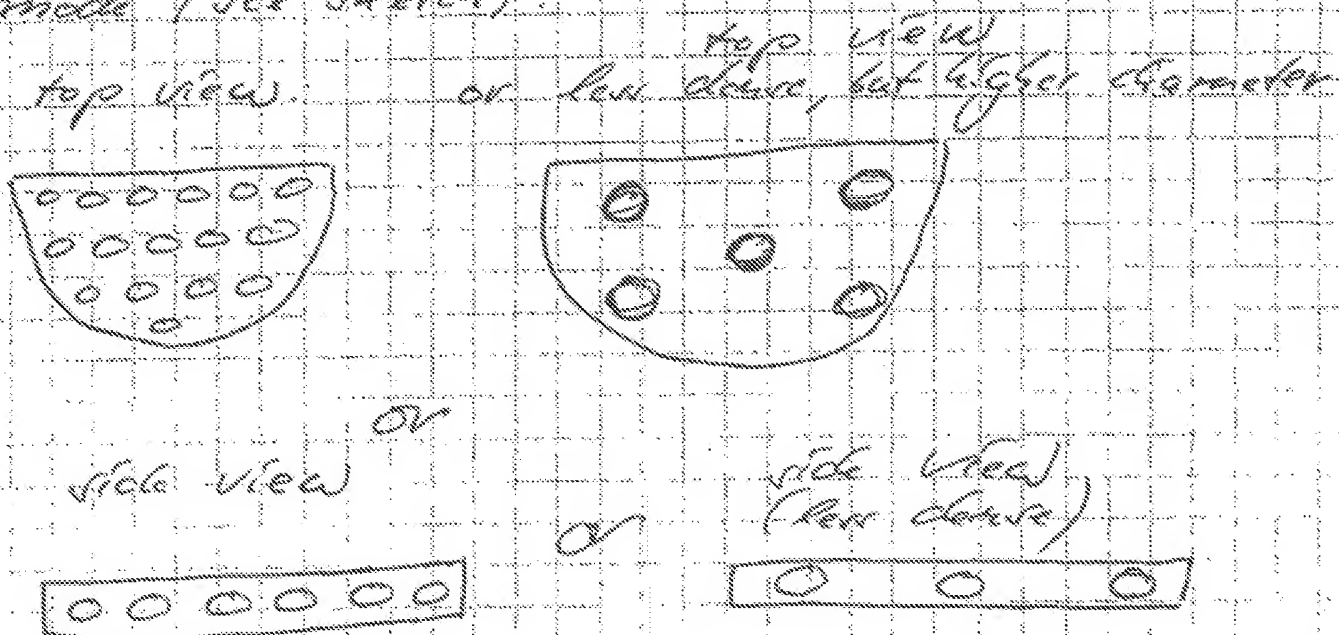 mode (see sketch).
top view
top view. or less dense, but higher diameter
or
side view
side view
(less dense)
or